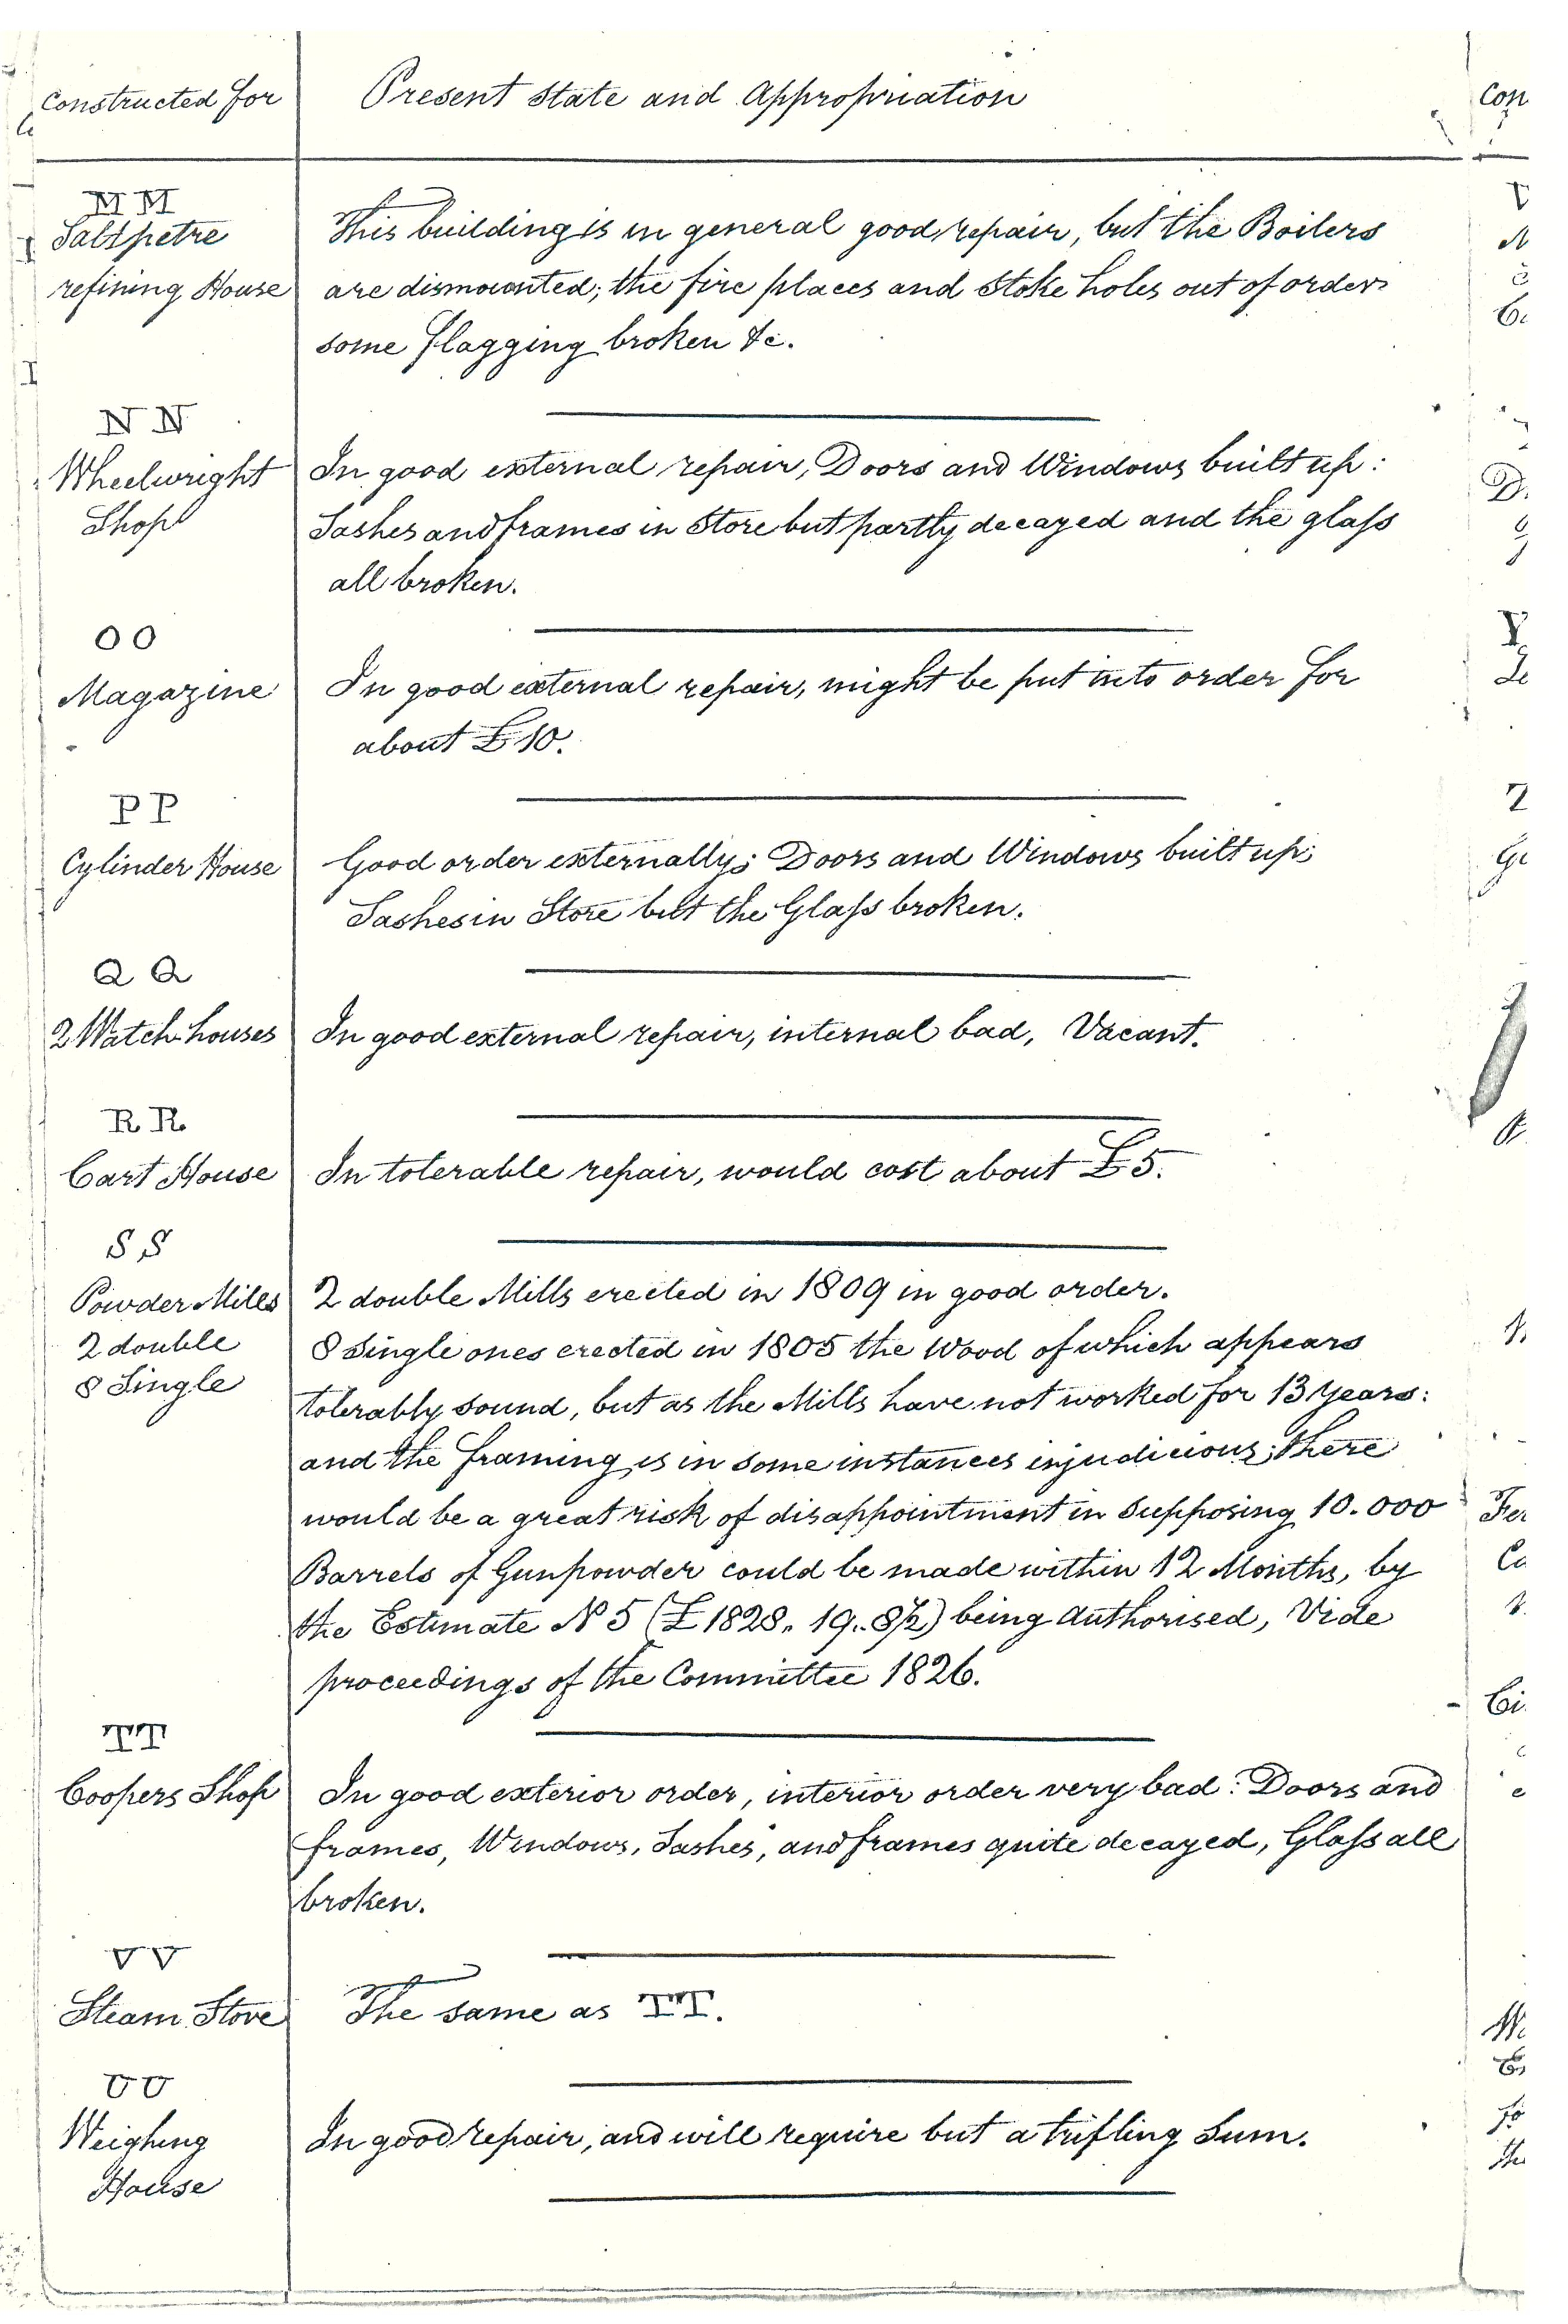 Constructed for
Present state and Appropriation
MM
Saltpetre
refining House
This building is in general good repair, but the Boilers
are dismounted; the fire places and Stoke holes out of order
some flagging broken &c.
NN
Wheelwright
Shop
In good external repair, Doors and Windows built up:
Sashes and frames in Store but partly decayed and the glass
all broken.
OO
Magazine
In good external repair, might be put into order for
about £10.
PP
Cylinder House
Good order externally; Doors and Windows built up;
Sashes in Store but the Glass broken.
QQ
2 Watch houses
In good external repair, internal bad, Vacant.
RR
Cart House
In tolerable repair, would cost about £5.
SS
Powder Mills
2 double
8 Single
2 double Mills erected in 1809 in good order.
8 Single ones erected in 1805 the Wood of which appears
tolerably sound, but as the Mills have not worked for 13 Years:
and the framing is in some instances injudicious; there
would be a great risk of disappointment in Supposing 10.000
Barrels of Gunpowder could be made within 12 Months, by
the Estimate No 5 (£1828. 19.. 8½) being Authorised, Vide
proceedings of the Committee 1826.
TT
Coopers Shop
In good exterior order, interior order very bad: Doors and
frames, Windows, Sashes, and frames quite decayed, Glass all
broken.
VV
Steam Stove
The same as TT.
UU
Weighing
House
In good repair, and will require but a trifling Sum.